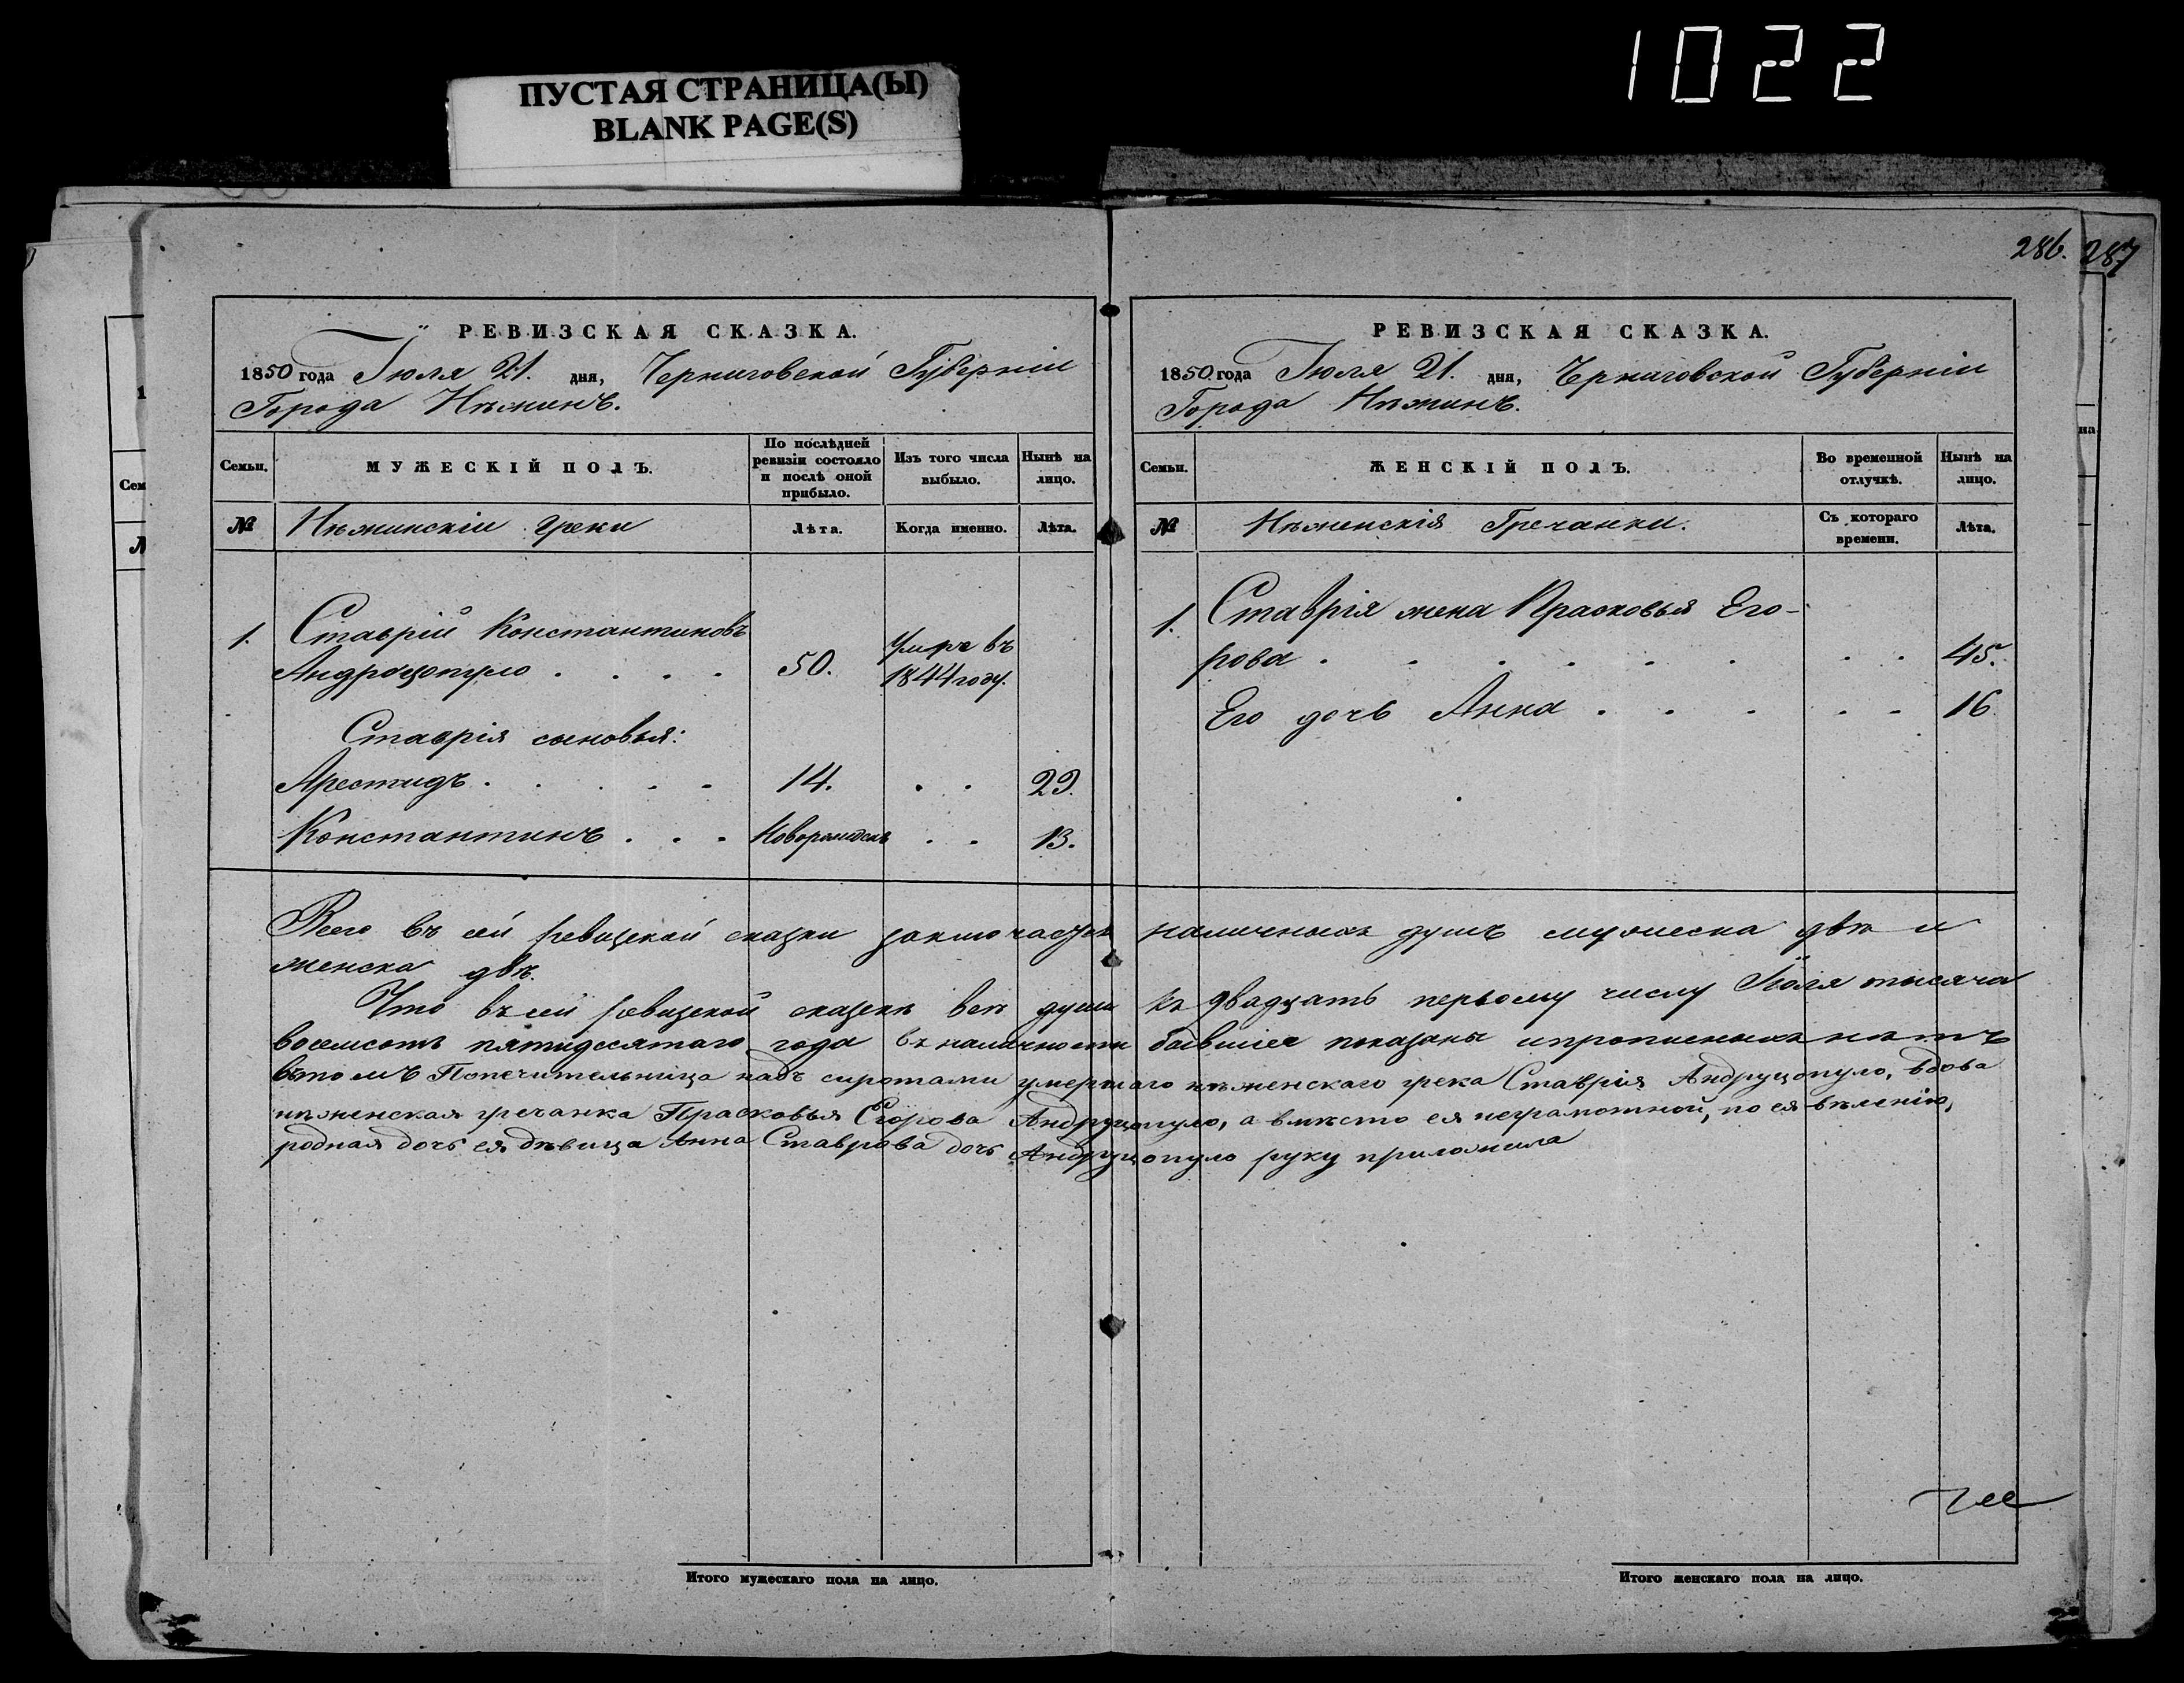 1022
ПУСТАЯ СТРАНИЦА(Ы)
BLANK PAGE(S)
286. 287
РЕВИЗСКАЯ СКАЗКА.
1850 года Іюля 21. дня, Черниговской Губерніи
Города Нѣжинъ.
Семьи.
МУЖЕСКІЙ ПОЛЪ.
По послѣдней ревизіи состояло и послѣ оной прибыло.
Изъ того числа выбыло.
Нынѣ на лицо.
№
Нѣжинскіи греки
Лѣта.
Когда именно.
Лѣта.
1. Ставрій Константиновъ
Андруцопуло . . . . 50. Умре въ 1844 году.
Ставрія сыновья:
Арестидъ . . . . . 14. . . 22.
Константинъ . . . Новорожден . . 13.
РЕВИЗСКАЯ СКАЗКА.
1850 года Іюля 21. дня, Черниговской Губерніи
Города Нѣжинъ.
Семьи.
ЖЕНСКІЙ ПОЛЪ.
Во временной отлучкѣ.
Нынѣ на лицо.
№
Нѣженскія Гречанки.
Съ котораго времени.
Лѣта.
1. Ставрія жена Прасковья Его-
рова . . . . . . . . . 45.
Его дочь Анна . . . . . 16.
Всего въ сей ревизской сказки заключается наличныхъ душъ мужеска двѣ и
женска двѣ.
Что въ сей ревизской сказкѣ всѣ души къ двадцать первому числу Іюля тысяча
восемсотъ пятидесятаго года въ наличности бывшіе показаны и прописныхъ нѣтъ
въ томъ Попечительница надъ сиротами умершаго нѣженскаго грека Ставрія Андруцопуло, вдова
нѣженская гречанка Прасковья Егорова Андруцопуло, а вмѣсто ея неграмотной, по ея вѣленію,
родная дочь ея дѣвица Анна Ставрова дочь Андруцопуло руку приложила
Итого мужескаго пола на лицо.
Итого женскаго пола на лицо.